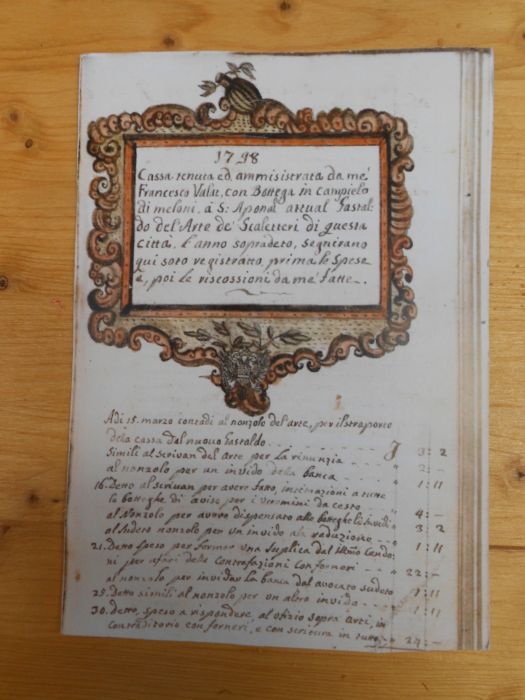 1798
Cassa tenuta ed ammisistrata da mé
Francesco Valat, con Bottega in campielo
di meloni, á S: Aponal attual Gastal-
do del'Arte de' Scaletteri di questa
città. L'anno sopradeto, seguirano
qui soto registratto, prima le Spese
è, poi le riscossioni da me' fatte.
Adi 15. marzo contadi al nonzolo del'arte, per il straporto
dela cassa dal nuovo Gastaldo 3:2
Simili al scrivan del'arte per la rinunzia " 2:-
al nonzolo per un invido dela banca " 1:11
16. Detto al scrivan per avere fatto, a tutte
le botteghe di aviso per i vermini da cesto " 4:-
al Nonzolo per avere dispensato alle botteghe li " 3:2
al sudeto nonzolo per un invido ala reduzione " 1:11
21. Detto speso per formar una suplica dal Illmo Cando-
ni per afari della Contrafazioni con forneri " 22:-
al nonzolo, per invidar la banca dal avocato sudeto 1:11
25. detto simili al nonzolo per un altro invido 1:11
30. detto, speso a rispondere al ofizio sopra arti, in
contraditorio con forneri, e con scritura in tutto " 24:-